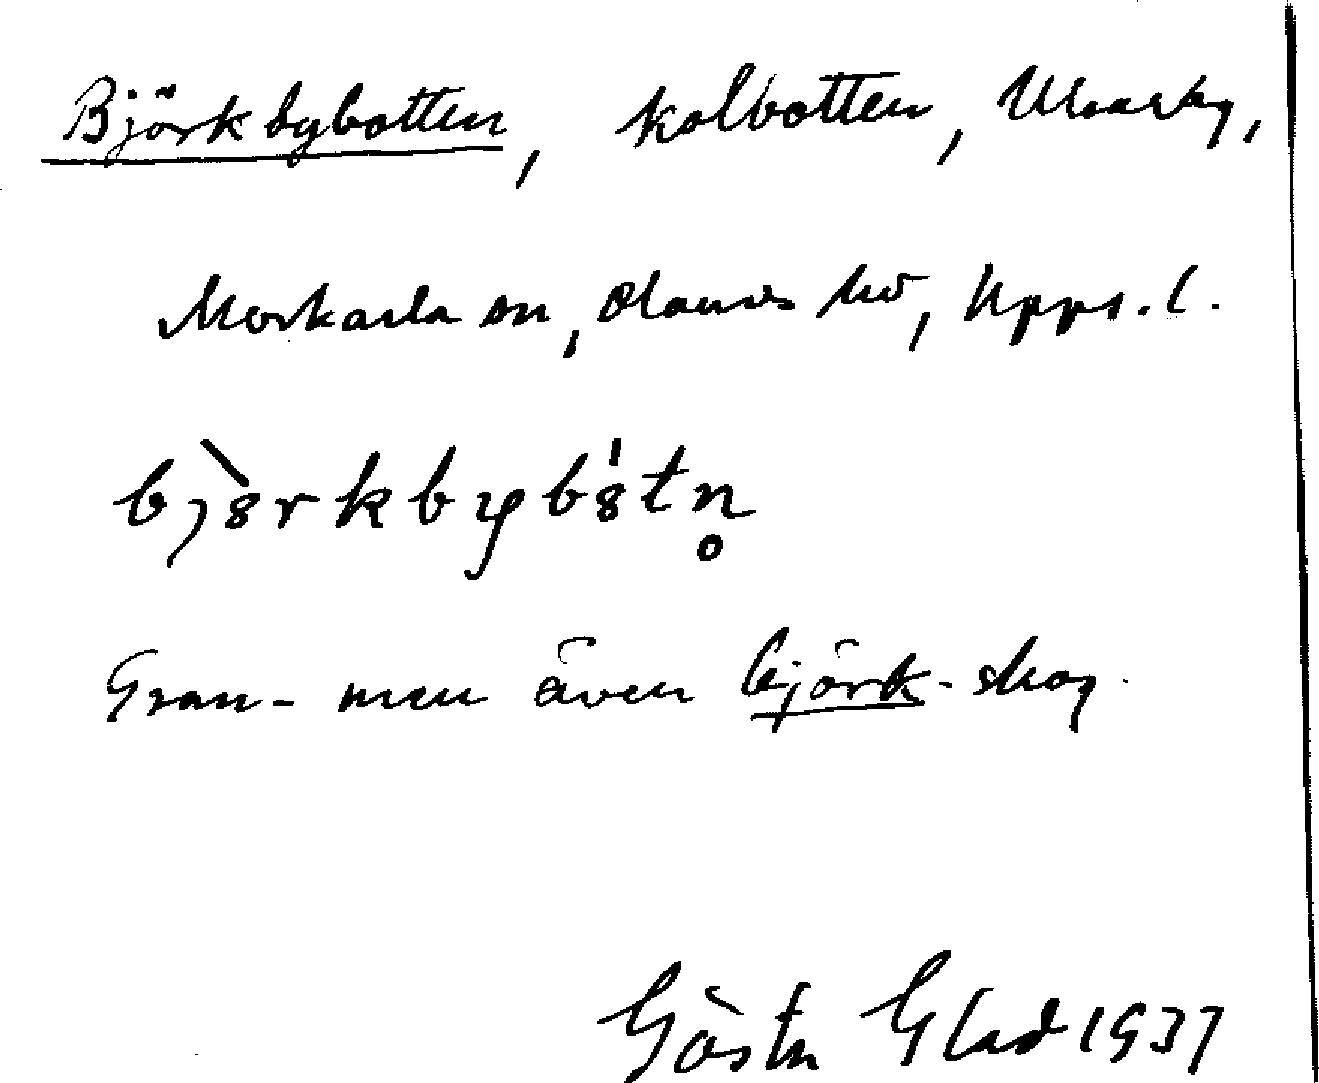 Björkbybotten, kolbotten, Ulvarby,
Morkarla sn, Olands hd, Upps. l.
bjòrkbybótn̥
Gran- men även björk-skog.
Gösta Glad 1937